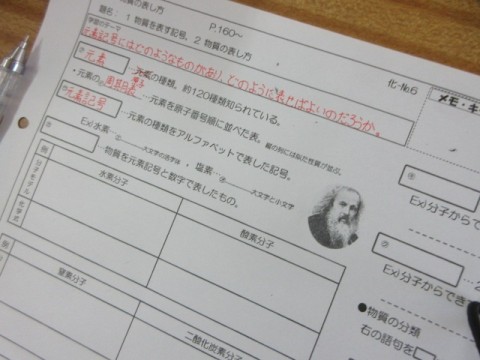 物質の表し方
P.160～
題名：１ 物質を表す記号，２ 物質の表し方
化-No6
学習のテーマ
元素記号とはどのようなものがあり、どのように表せばよいのだろうか。
メモ・キ
元素
の種類。約120種類知られている。
・元素の 周期表
…元素を原子番号順に並べた表。縦の列には似た性質が並ぶ。
元素記号
…元素の種類をアルファベットで表した記号。
Ex) 水素…
大文字の活字体
，塩素…
大文字と小文字
…物質を元素記号と数字で表したもの。
例
水素分子
酸素分子
分子モデル
化学式
例
窒素分子
二酸化炭素分子
Ex)分子からで
Ex)分子からでき
●物質の分類
右の語句を